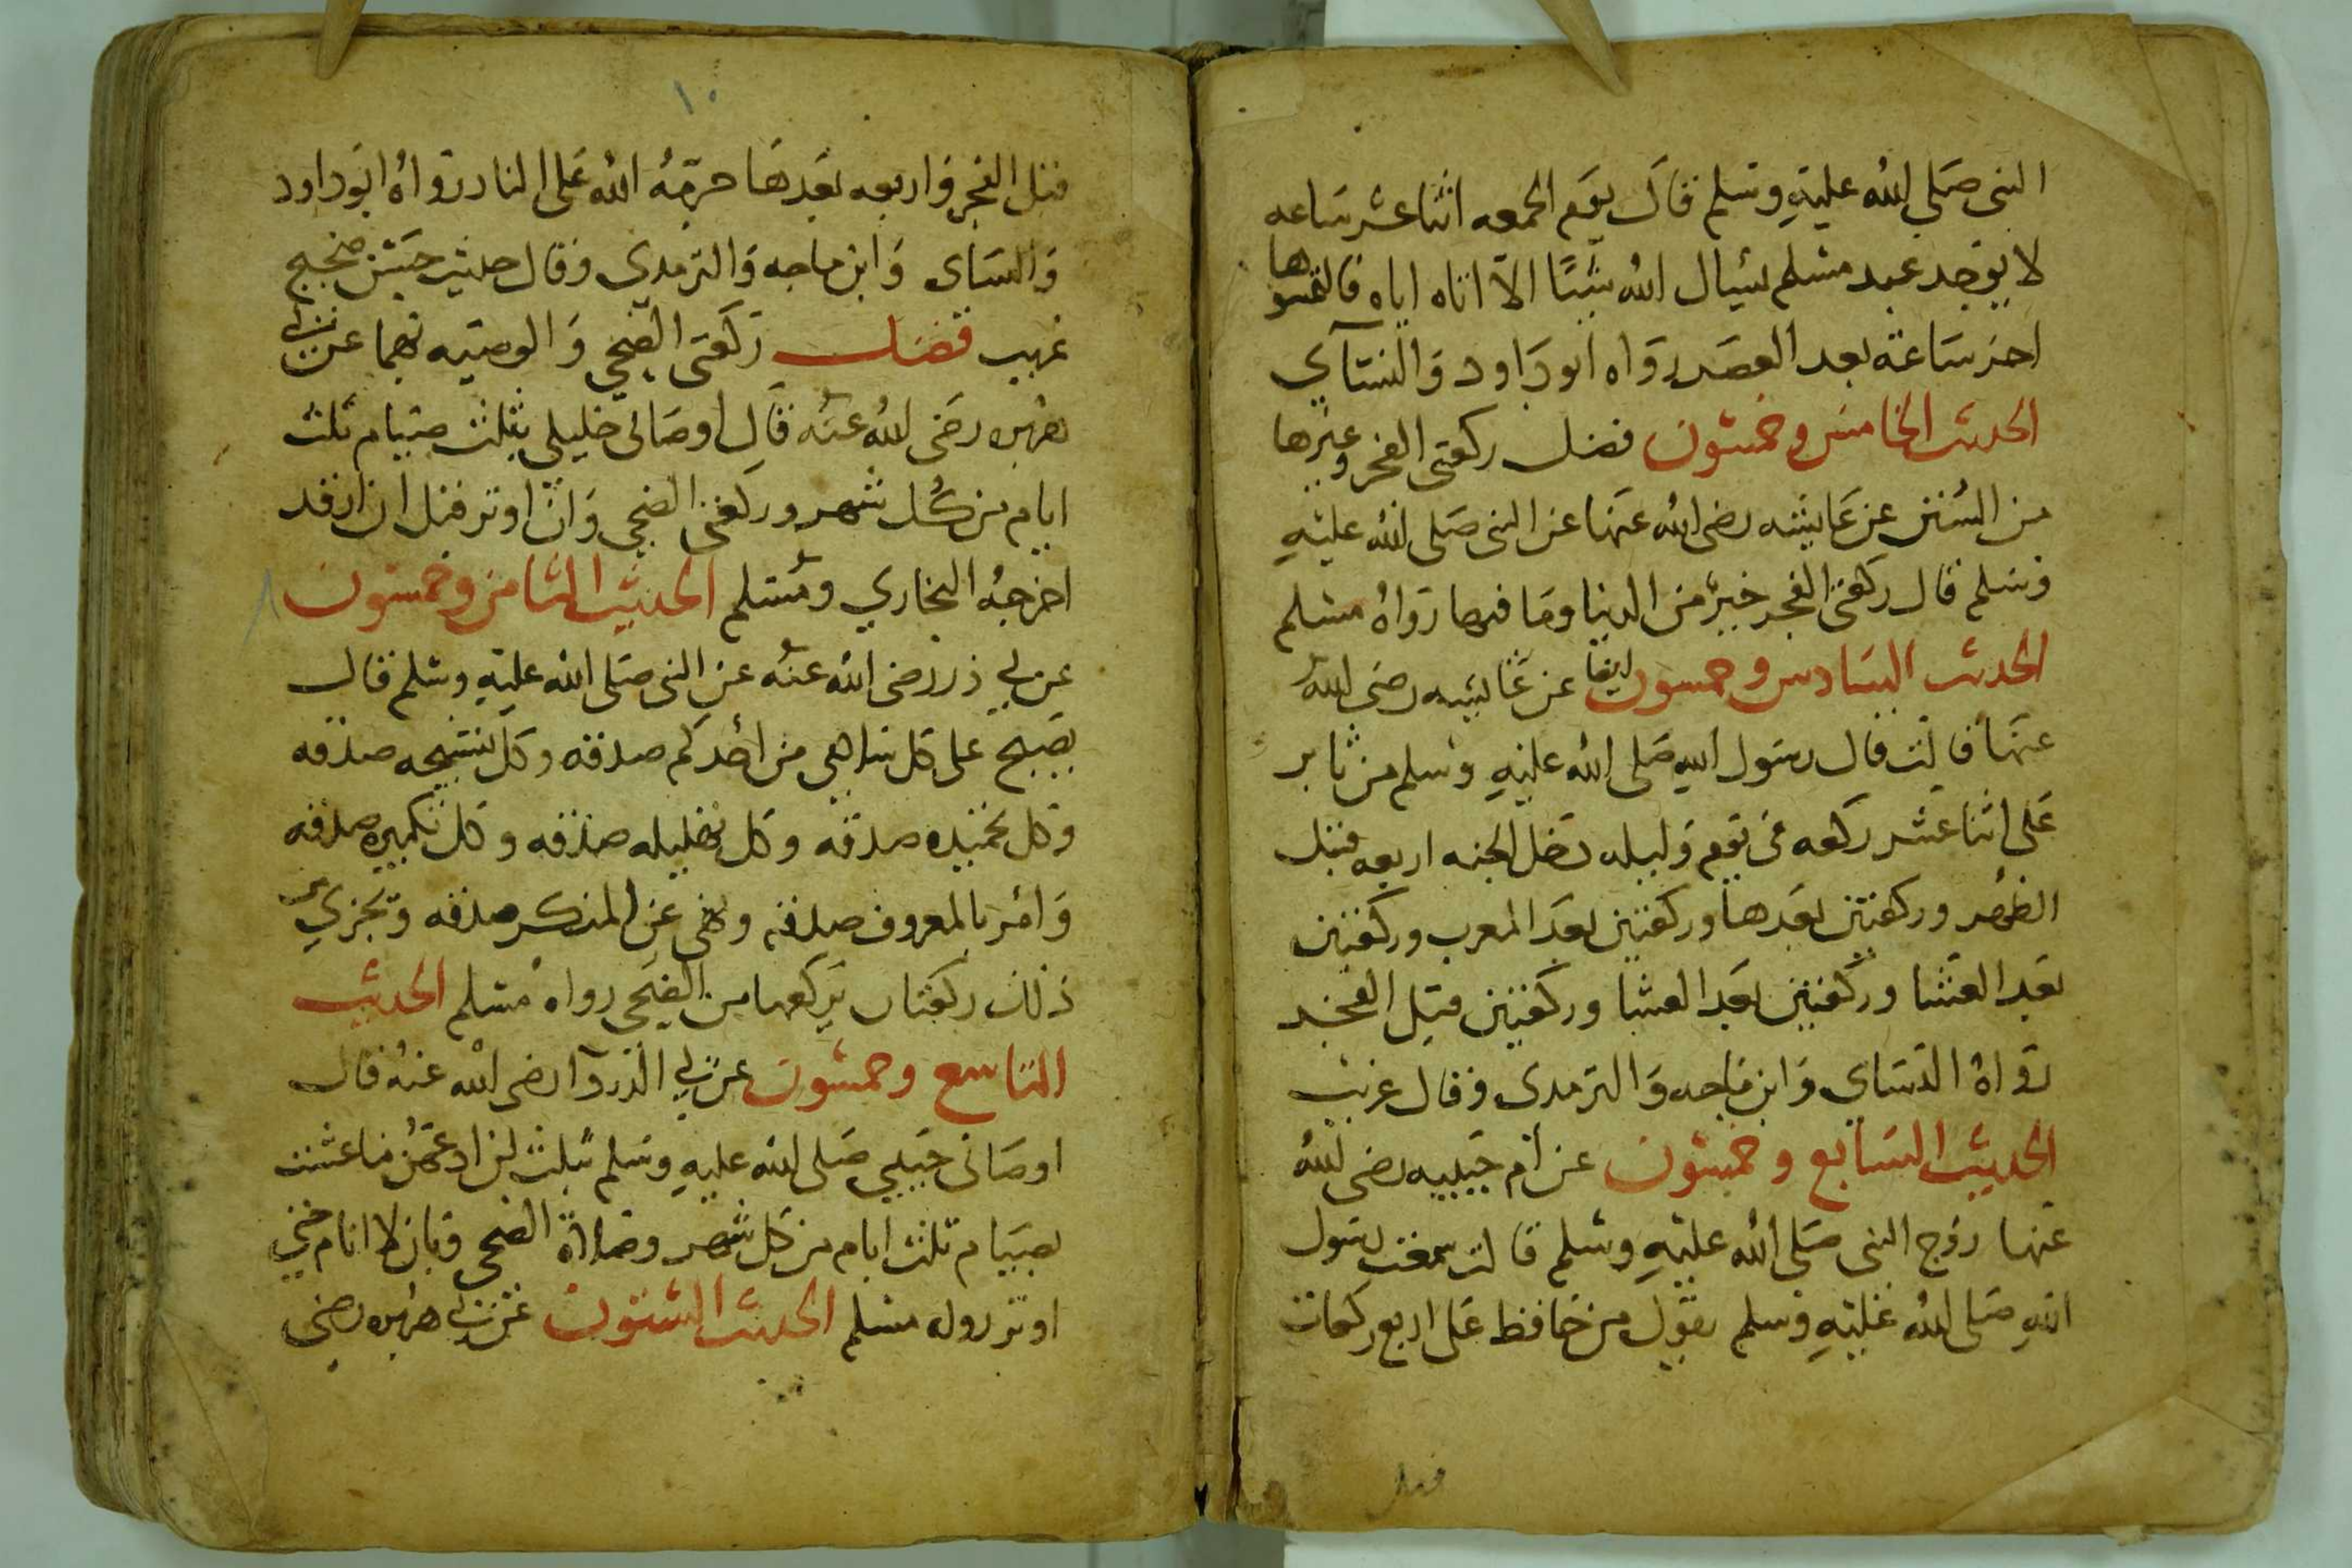 النبى صَلى الله عليهِ وسلم قال يوم الجمعه اثنا عشر ساعه
لا يوجد عبد مسلم يسال الله شيئا الا اتاه اياه فالتمسوها
اخر ساعة بعد العصر رواه ابو داود والنسآي
الحديث الخامس وخمسون فضل ركعتى الفجر وغيرها
من السنن عن عايشه رضى الله عنها عن النبى صَلى الله عليهِ
وسلم قال ركعتى الفجر خير من الدنيا وما فيها رواه مسلم
الحديث السادس وخمسون ايضا عن عايشه رضى الله
عنها قالت قال رسول الله صَلى الله عليهِ وسلم من ثابر
على اثنا عشر ركعه فى يوم وليله دخل الجنه اربعه قبل
الظهر وركعتين بعدها وركعتين بعد المغرب وركعتين
بعد العشا وركعتين بعد العشا وركعتين قبل الفجر
رواه النساي وابن ماجه والترمدى وقال غريب
الحديث السابع وخمسون عن ام حبيبه رضى الله
عنها زوج النبى صَلى الله عليهِ وسلم قالت سمعت رسول
الله صَلى الله عليهِ وسلم يقول من حافظ على اربع ركعات
قبل
١٠
قبل الفجر واربعه بعدها حرمه الله على النار رواه ابو داود
والنساى وابن ماجه والترمدي وقال حديث حسن صحيح
غريب فضل ركعتى الضحي والوصيه بهما عن ابي
هريره رضى الله عنه قال اوصانى خليلي بثلث صيام ثلث
ايام من كل شهر وركعتى الضحي وان اوتر قبل ان ارقد
اخرجه البخاري ومسلم الحديث الثامن وخمسون
عن ابي ذر رضى الله عنه عن النبى صَلى الله عليهِ وسلم قال
يصبح على كل سلامى من احدكم صدقه وكل تسبيحه صدقه
وكل تحميده صدقه وكل تهليله صدقه وكل تكبيره صدقه
وامر بالمعروف صدقه ونهى عن المنكر صدقه وتجزيء
ذلك ركعتان يركعهما من الضحي رواه مسلم الحديث
التاسع وخمسون عن ابي الدردآ رضى الله عنه قال
اوصانى حبيبي صَلى الله عليهِ وسلم بثلث لن ادعهن ما عشت
بصيام ثلث ايام من كل شهر وصلاة الضحى وبان لا انام حتي
اوتر رواه مسلم الحديث الستون عن ابي هريره رضى